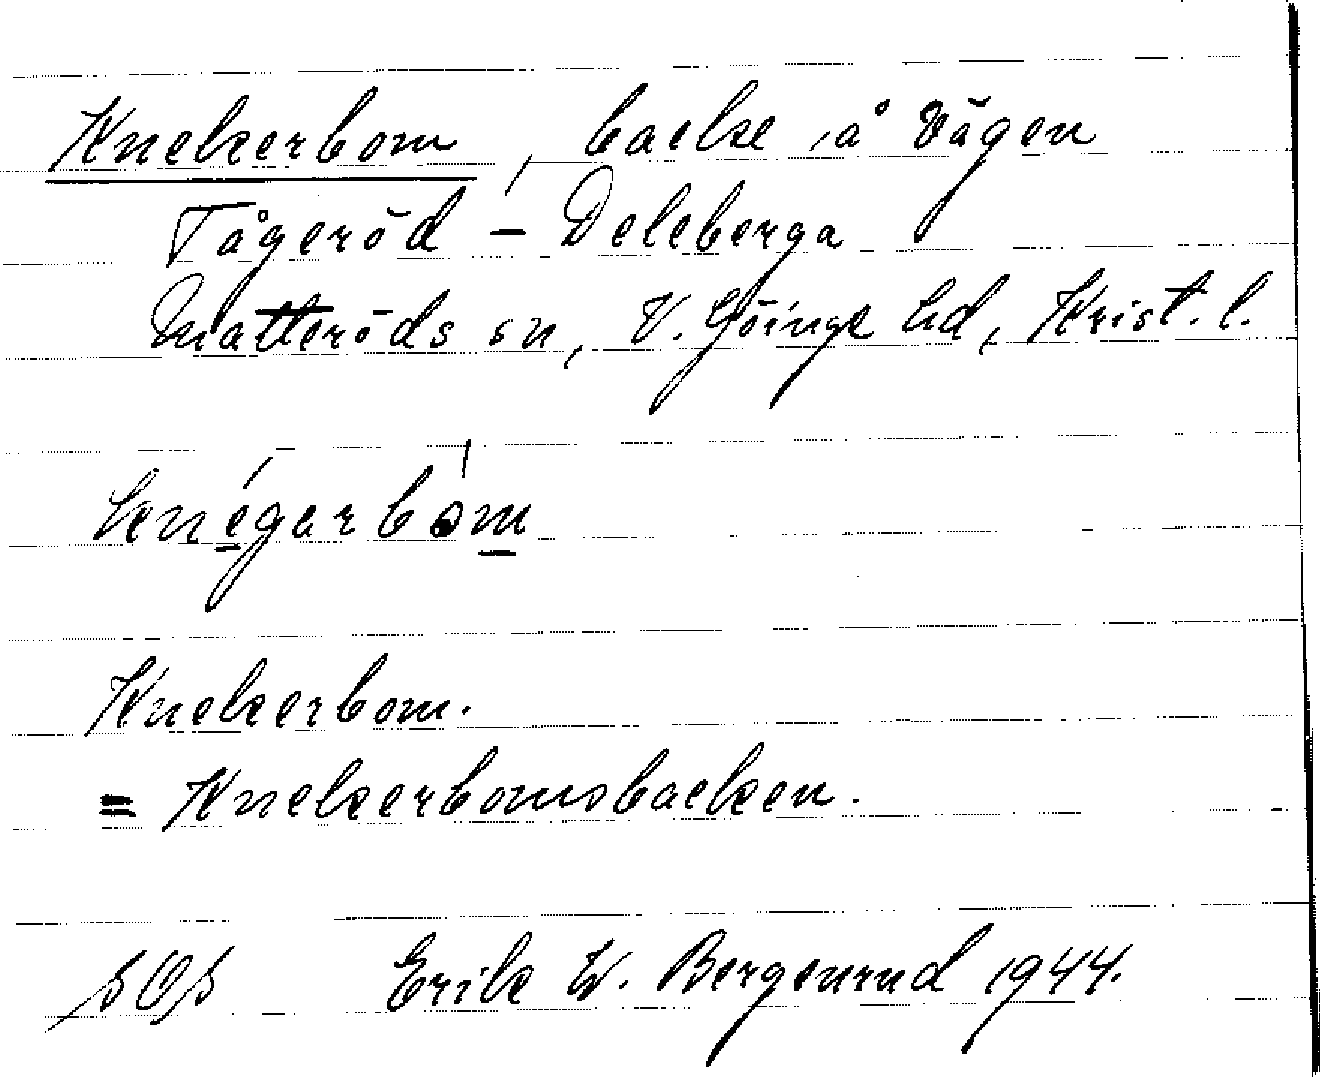 Knekerbom, backe å vägen
Tågeröd – Deleberga
Matteröds sn, V. Göinge hd, Krist. l.
knégarbòm
Knekerbom.
= Knekerbomsbacken.
Erik W. Bergenrud 1944.